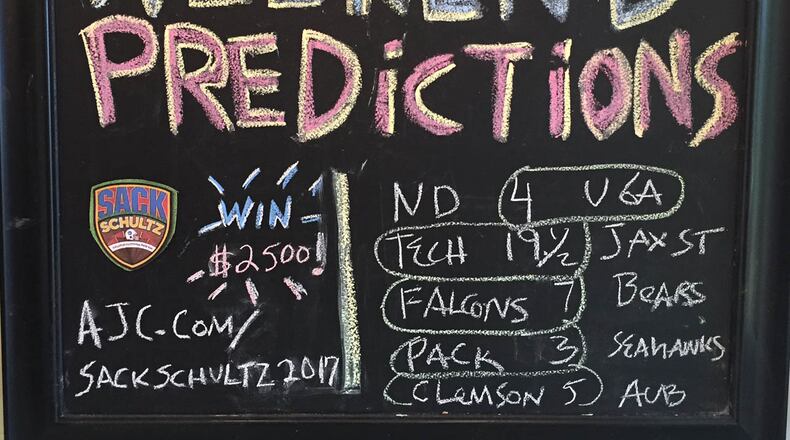 WEEKEND
PREDiCTiONS
SACK
SCHULTZ
WIN
$2500!
AJC.COM/
SACKSCHULTZ2017
ND 4 UGA
TECH 19½ JAX ST
FALCONS 7 BEARS
PACK 3 SEAHAWKS
CLEMSON 5 AUB